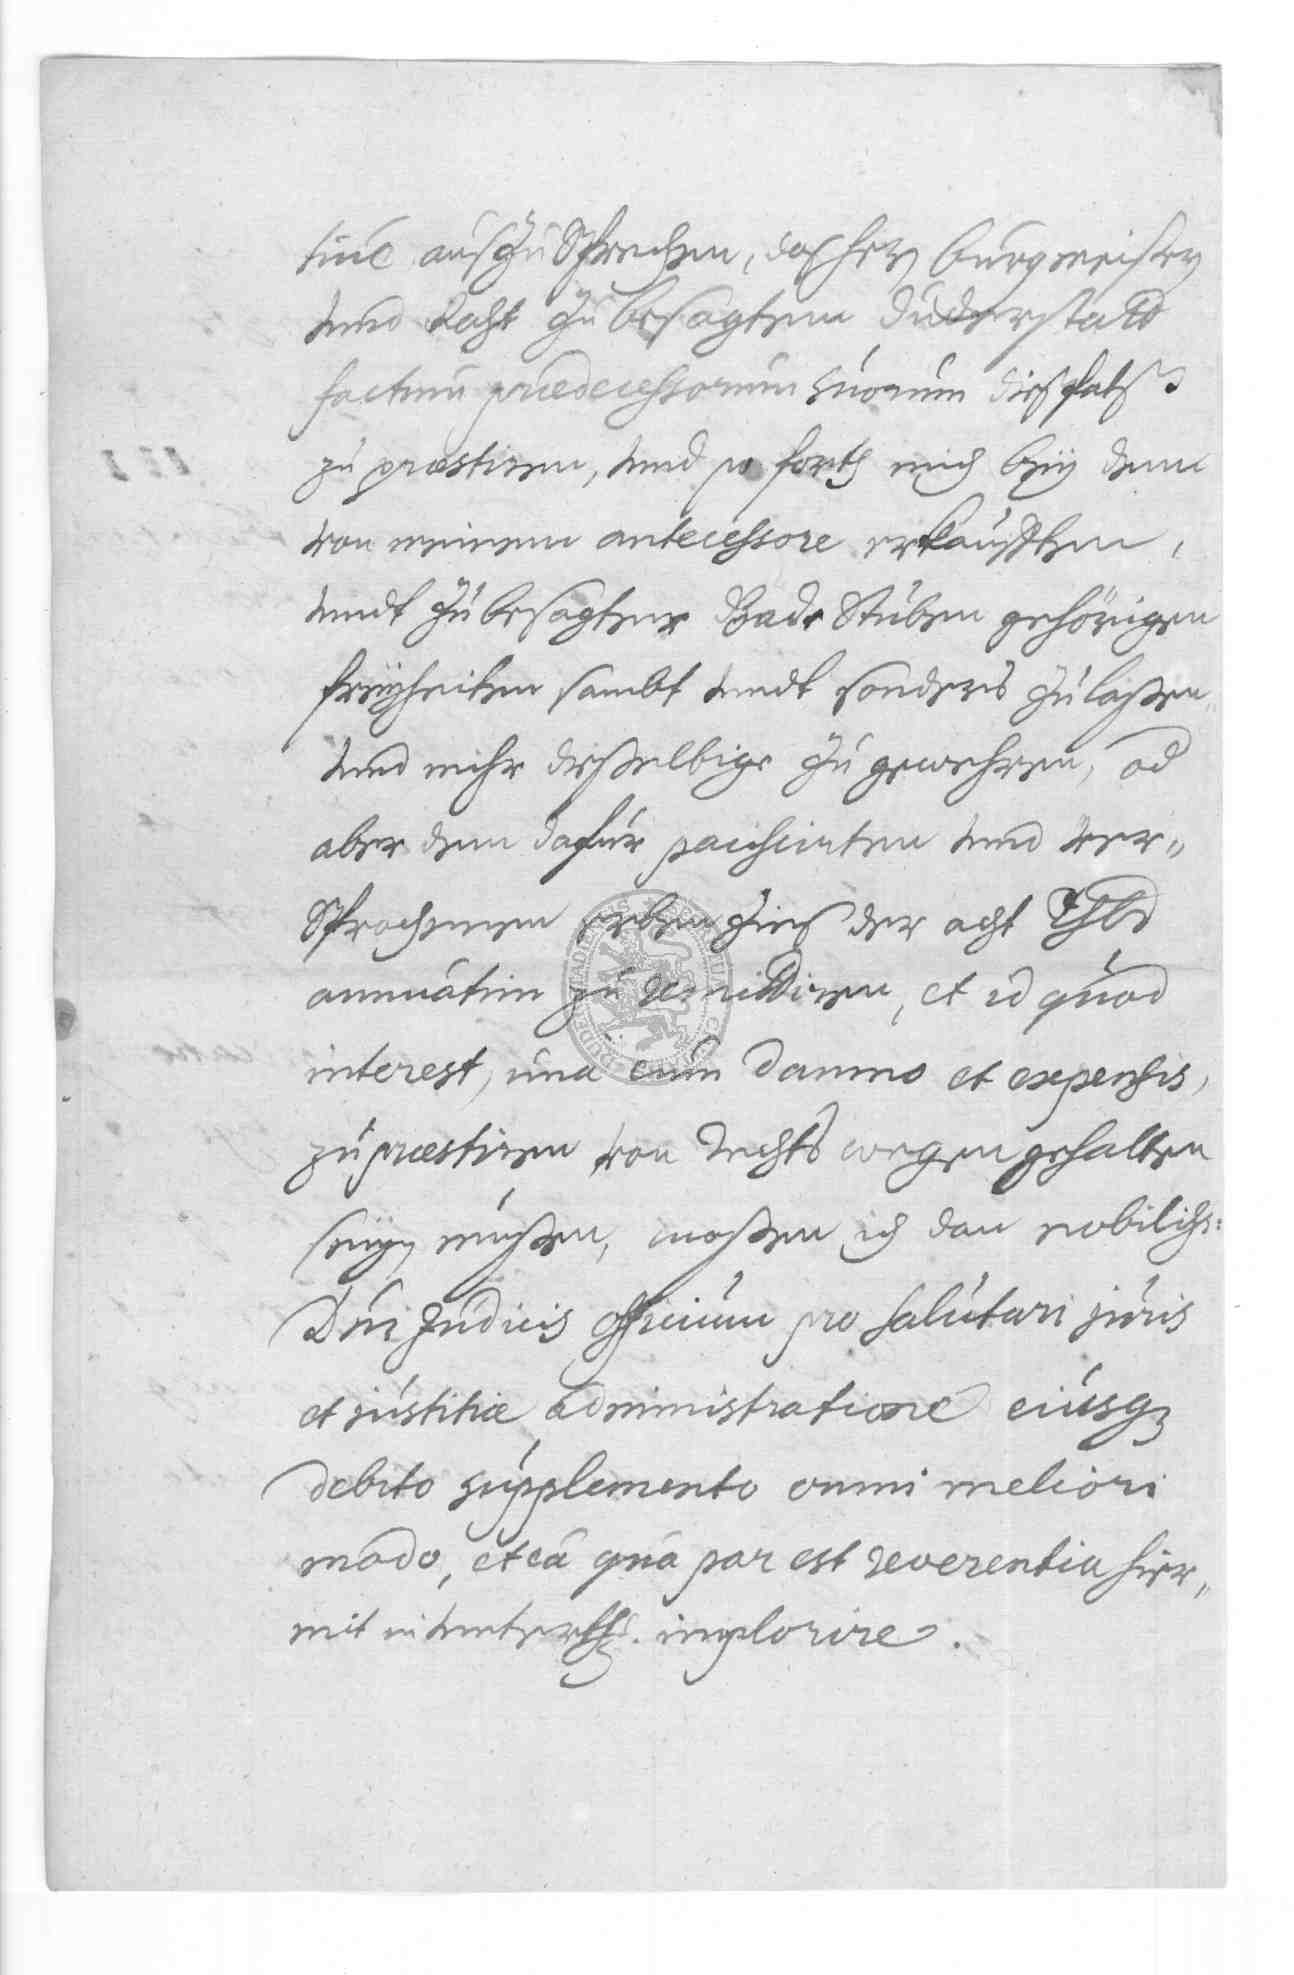 tive außzuSprechen, daß herr burgmeister
undt Raht zu besagtem Duderstadt
factum prædecessorum suorum dießfalß
zu præstiren, undt so forth mich bey dem
von meinem antecessore erkaufften,
undt zu besagter BadeStuben gehörigen
freyheiten sambt undt sonders zu laßen,
undt mihr dießelbige zu gewehren, od
aber den dafür pacisirten undt ver-
Sprochenen erben Zinß der acht Thlr
annuatim zu remittiren, et id quod
interest, una cum damno et expensis,
zu præstiren von Rechts wegen gehalten
seyn müßen, maßen ich dan nobiliss:
Dni Judicis officium pro salutari juris
et justitiæ administratione ejusq3
debito supplemento omni meliori
modo, et eâ quâ par est reverentia hier-
mit implorire.